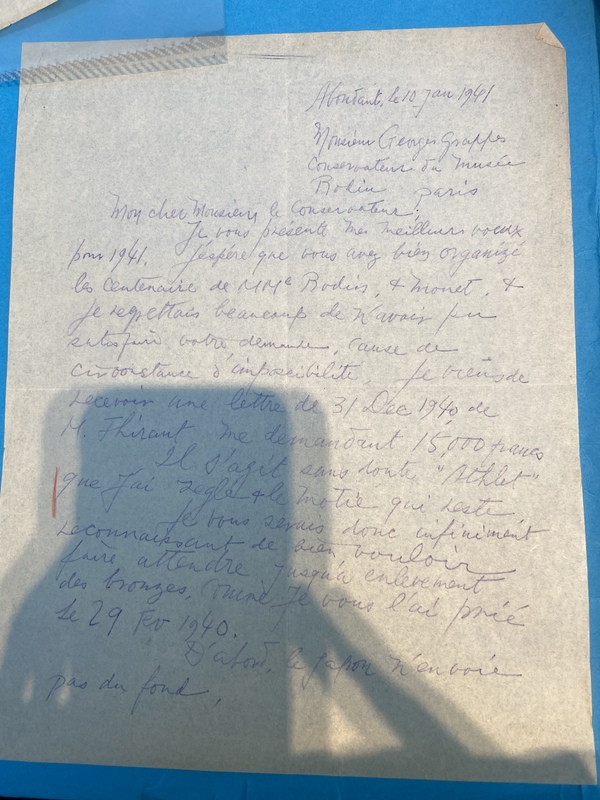 Abondant, le 10 Jan 1941
Monsieur Georges Grappes
Conservateur du Musée
Rodin Paris
Mon cher Monsieur le Conservateur;
Je vous présente mes meilleurs voeux
pour 1941. J'espère que vous avez bien organizé
les Centenaire de MM Rodin, & Monet, &
je regrettais beaucoup de n'avoir pu
satisfaire votre demande, cause de
circonstance d'imposcibilité. Je viens de
recevoir une lettre de 31 Dec 1940 de
M. Thirant me demandant 15,000 francs
Il s'agit sans doute "Athlet"
que j'ai réglé & le motié qui reste,
Je vous serais donc infiniment
reconnaissant de bien vouloir
faire attendre jusqu'à enlèvement
des bronzes, comme je vous l'ai prié
le 29 Fev 1940.
D'abord, le Japon n'envoie
pas du fond,